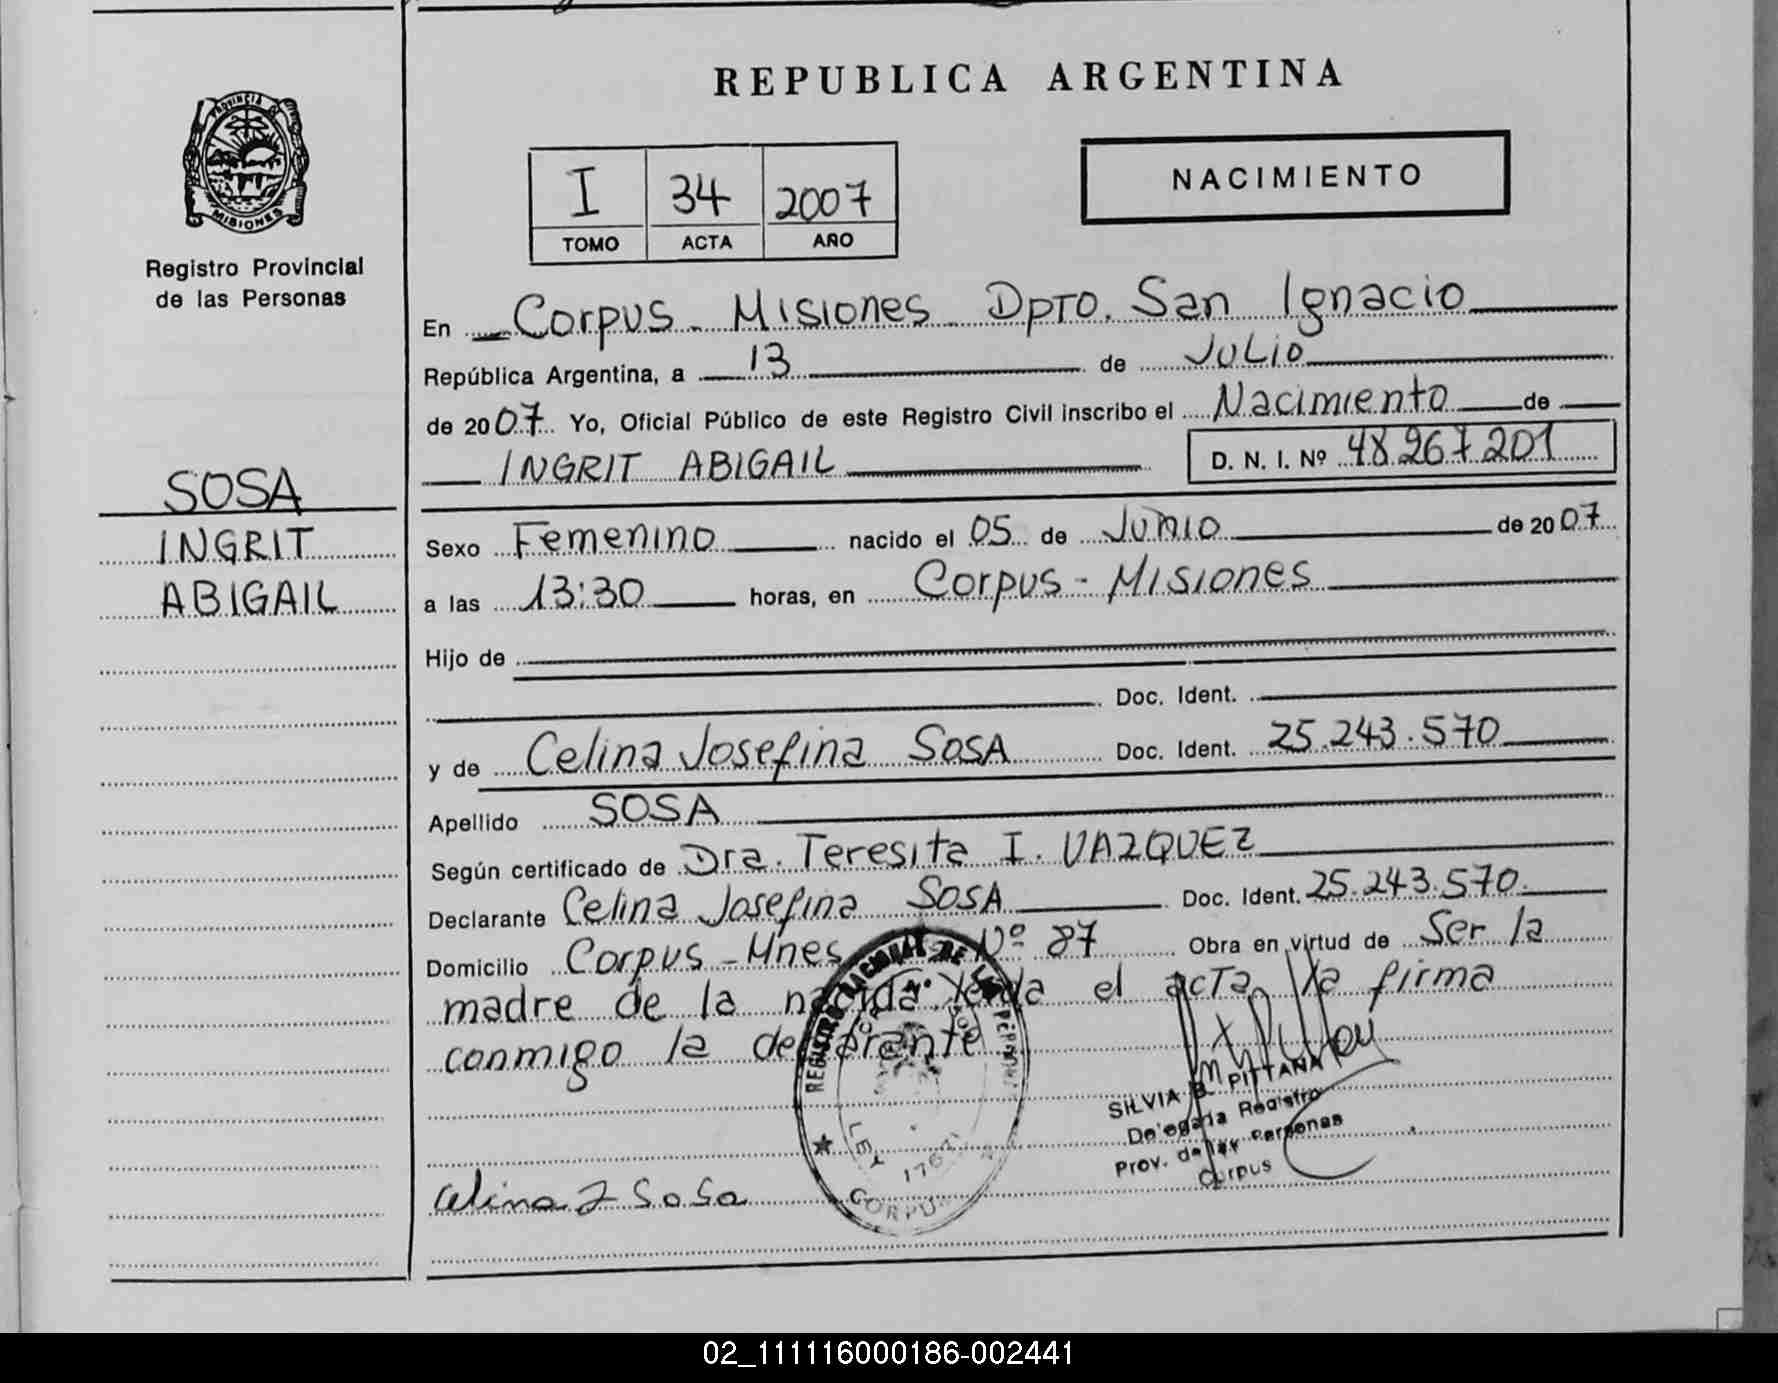 REPUBLICA ARGENTINA
PROVINCIA DE
MISIONES
Registro Provincial
de las Personas
I 34 2007
TOMO ACTA AÑO
NACIMIENTO
SOSA
INGRIT
ABIGAIL
En Corpus - Misiones - Dpto. San Ignacio
República Argentina, a 13 de Julio
de 2007. Yo, Oficial Público de este Registro Civil inscribo el Nacimiento de
INGRIT ABIGAIL D. N. I. Nº 48.267.201
Sexo Femenino nacido el 05 de Junio de 2007
a las 13:30 horas, en Corpus - Misiones
Hijo de
Doc. Ident.
y de Celina Josefina SOSA Doc. Ident. 25.243.570
Apellido SOSA
Según certificado de Dra. Teresita I. VAZQUEZ
Declarante Celina Josefina SOSA Doc. Ident. 25.243.570.
Domicilio Corpus - Mnes Nº 87 Obra en virtud de Ser la
madre de la nacida. Leída el acta, la firma
conmigo la declarante
SILVIA B. PITTANA
Delegada Registro
Prov. de las Personas
Corpus
REGISTRO NACIONAL DE LAS PERSONAS
LEY
CORPUS
Celina J Sosa
02_111116000186-002441